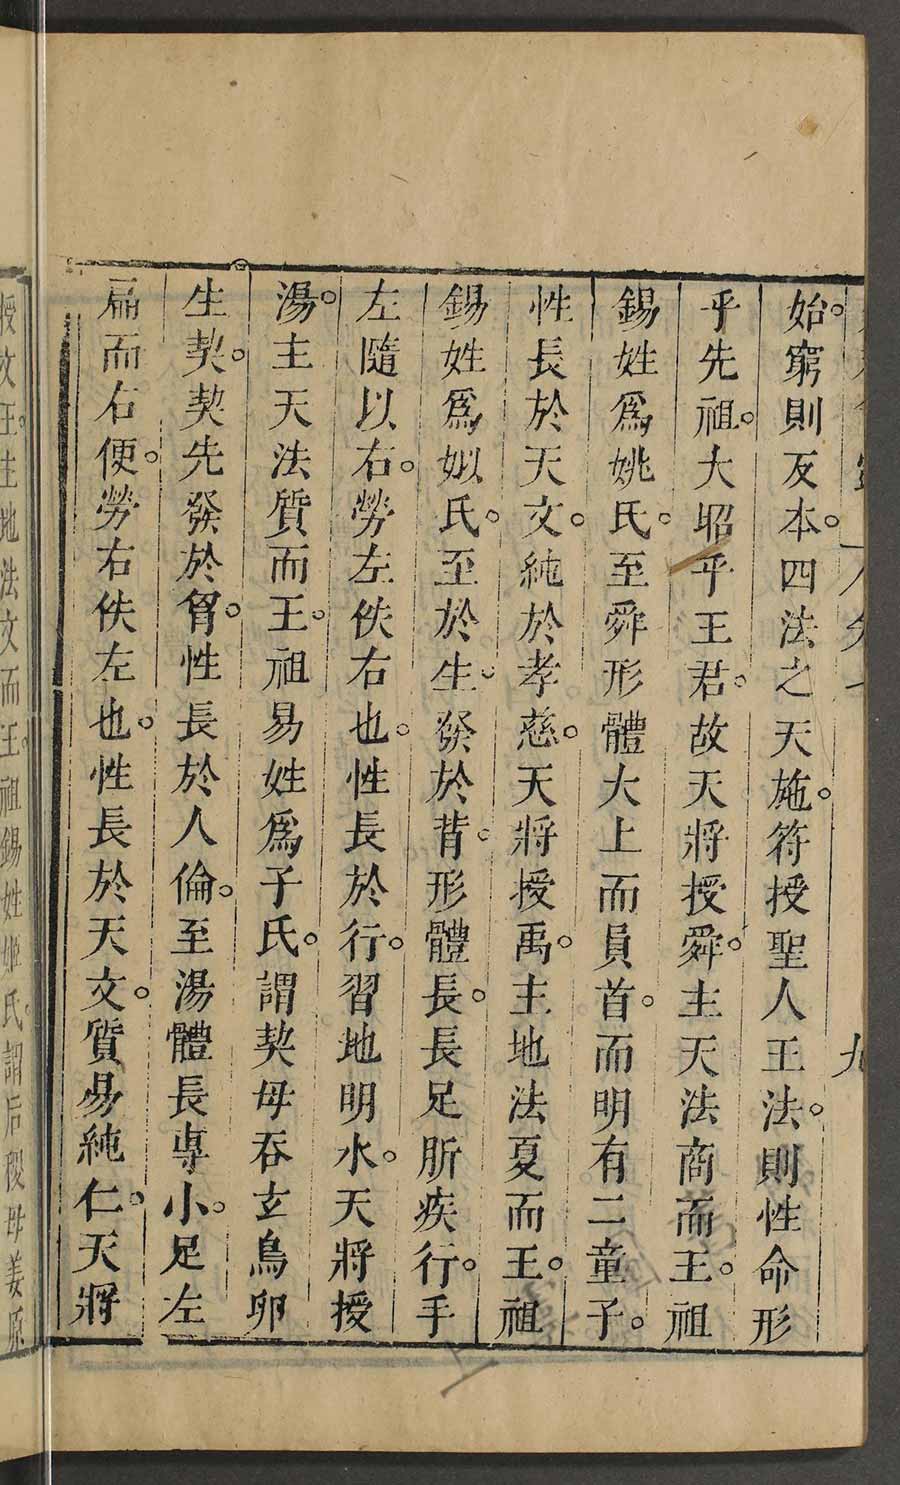 始。窮則反本。四法之天施。符授聖人王法。則性命形
乎先祖。大昭乎王君。故天將授舜。主天法商而王。祖
錫姓爲姚氏。至舜形體大上而員首。而明有二童子。
性長於天文。純於孝慈。天將授禹。主地法夏而王。祖
錫姓爲姒氏。至於生。發於背。形體長。長足肵疾行。手
左隨以右。勞左佚右也。性長於行。習地明水。天將授
湯。主天法質而王。祖易姓爲子氏。謂契母吞玄鳥卵
生契。契先發於胷。性長於人倫。至湯體長專小。足左
扁而右便。勞右佚左也。性長於天文。質易純仁。天將
授文王。主地法文而王。祖錫姓姬氏。謂后稷母姜原